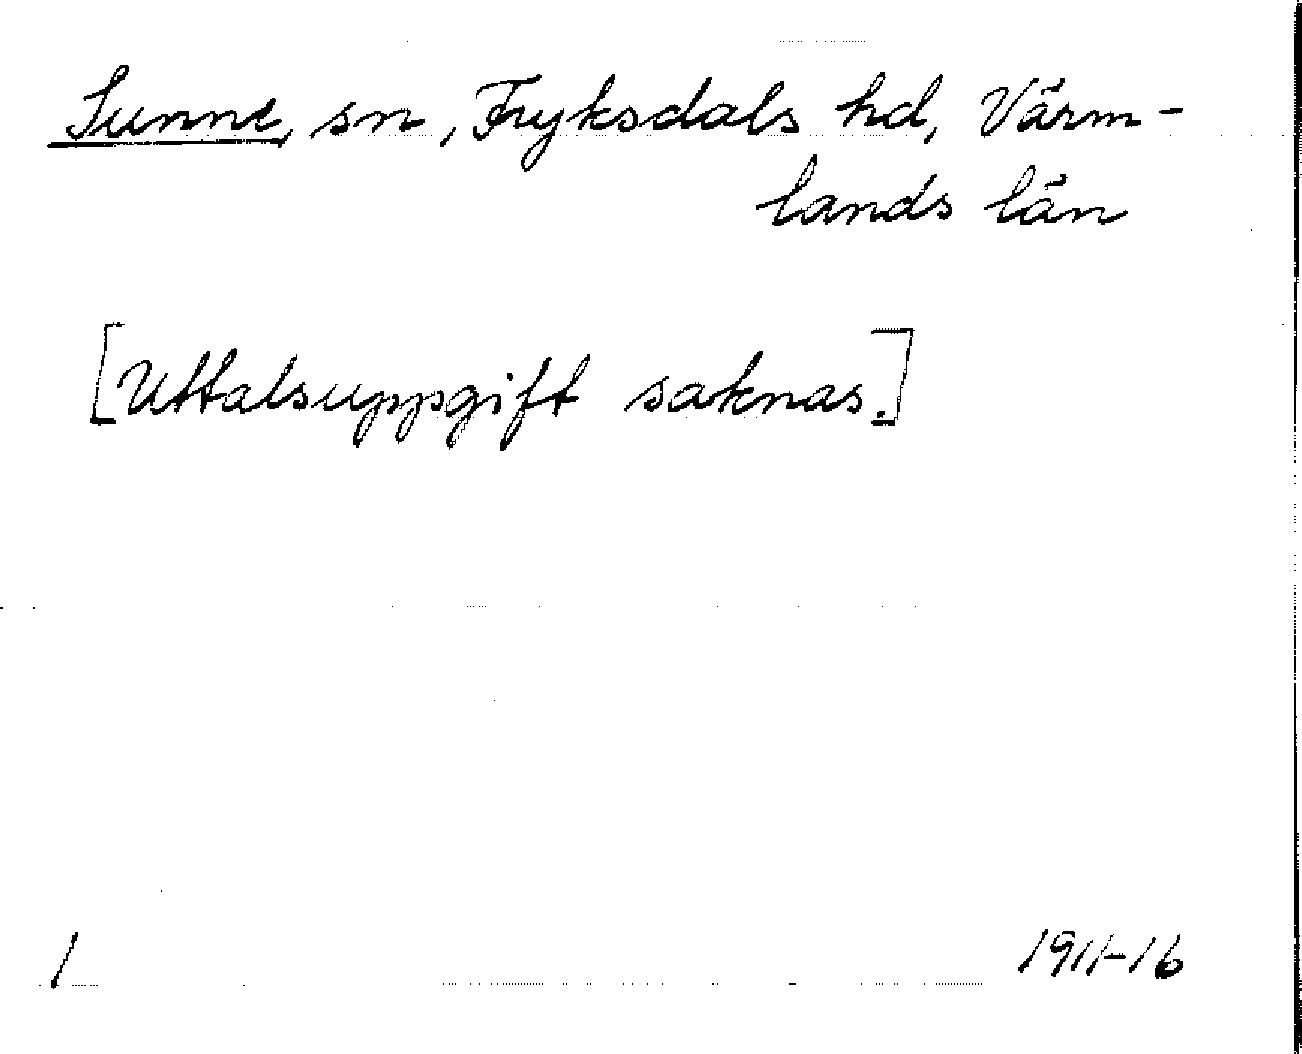 Sunne, sn, Fryksdals hd, Värm-
lands län
[Uttalsuppgift saknas.]
1 1911-16